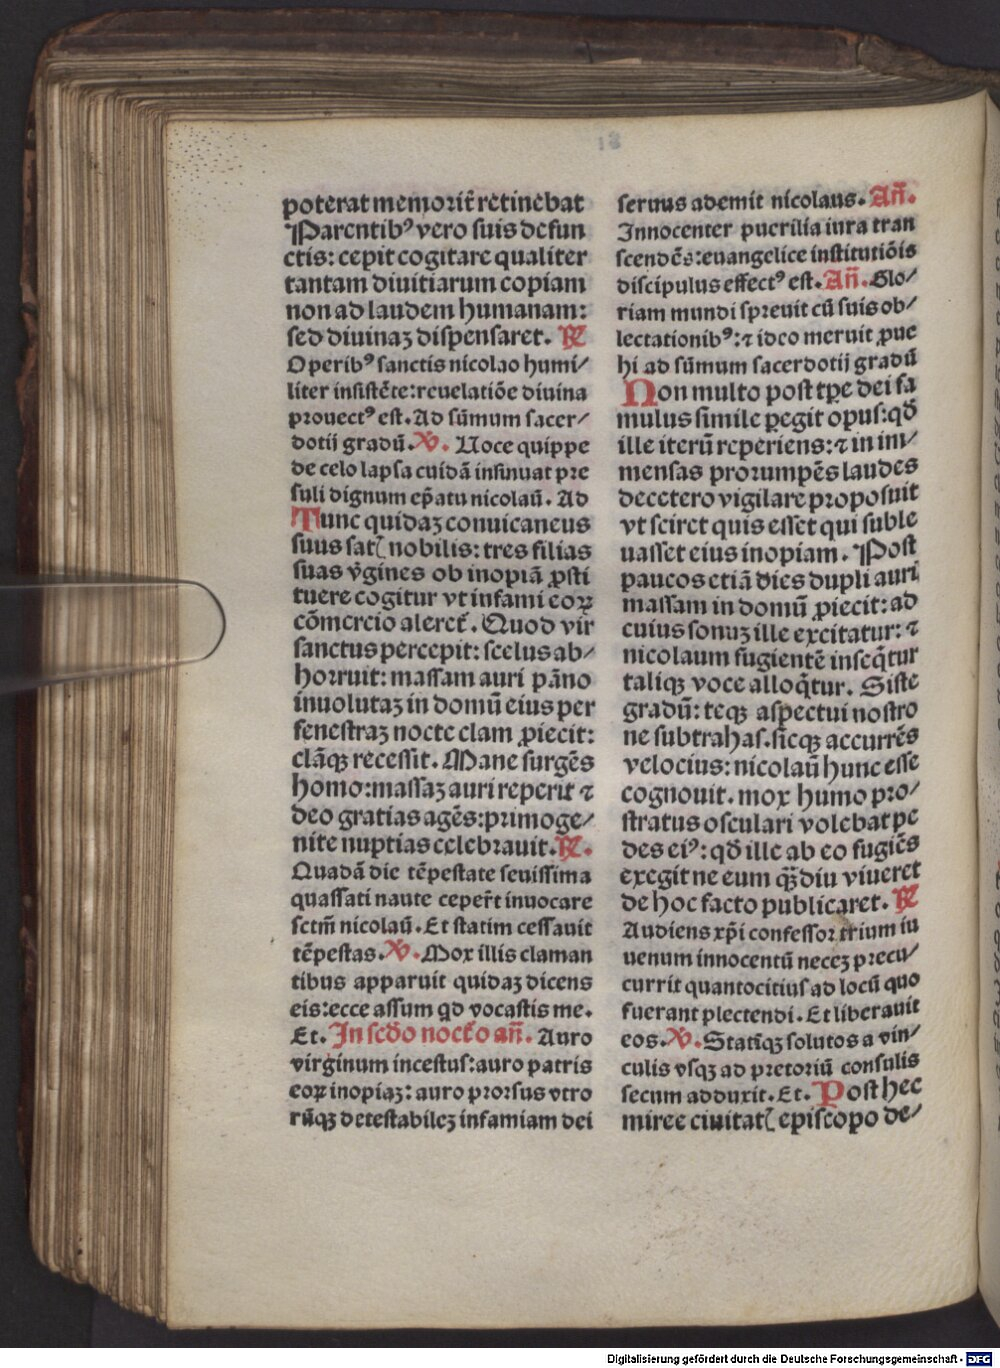 18
poterat memorit̃ retinebat
Parentibꝰ vero suis defun
ctis: cepit cogitare qualiter
tantam diuitiarum copiam
non ad laudem humanam:
sed diuinaʒ dispensaret. ℟
Operibꝰ sanctis nicolao humi/
liter insistẽte: reuelatiõe diuina
prouectꝰ est. Ad sũmum sacer/
dotij gradũ. ℣. Uoce quippe
de celo lapsa cuidã insinuat pre
suli dignum ep̃atu nicolaũ. Ad
Tunc quidaʒ conuicaneus
suus satꝭ nobilis: tres filias
suas v̾gines ob inopiã ꝓsti
tuere cogitur vt infami eoꝝ
cõmercio aleret̃. Quod vir
sanctus percepit: scelus ab/
horruit: massam auri pãno
inuolutaʒ in domũ eius per
fenestraʒ nocte clam ꝓiecit:
clãqʒ recessit. Mane surgẽs
homo: massaʒ auri reperit ⁊
deo gratias agẽs: primoge/
nite nuptias celebrauit. ℟.
Quadã die tẽpestate seuissima
quassati naute ceper̃t inuocare
sctm̃ nicolaũ. Et statim cessauit
tẽpestas. ℣. Mox illis claman
tibus apparuit quidaʒ dicens
eis: ecce assum qd vocastis me.
Et. In scd̃o noct̃o añ. Auro
virginum incestus: auro patris
eoꝝ inopiaʒ: auro prorsus vtro
rũqʒ detestabileʒ infamiam dei
seruus ademit nicolaus. Añ.
Innocenter puerilia iura tran
scendẽs: euangelice institutiõis
discipulus effectꝰ est. Añ. Glo/
riam mundi spreuit cũ suis ob/
lectationibꝰ: ⁊ ideo meruit ꝓue
hi ad sũmum sacerdotij gradũ
Non multo post tꝑe dei fa
mulus simile ꝑegit opus: qd̃
ille iterũ reperiens: ⁊ in im/
mensas prorumpẽs laudes
decetero vigilare proposuit
vt sciret quis esset qui suble
uasset eius inopiam. Post
paucos etiã dies dupli auri
massam in domũ ꝓiecit: ad
cuius sonuʒ ille excitatur: ⁊
nicolaum fugientẽ inseq̃tur
taliqʒ voce alloq̃tur. Siste
gradũ: teqʒ aspectui nostro
ne subtrahas. sicqʒ accurrẽs
velocius: nicolaũ hunc esse
cognouit. mox humo pro/
stratus osculari volebat pe
des eiꝰ: qd̃ ille ab eo fugiẽs
exegit ne eum qͣʒdiu viueret
de hoc facto publicaret. ℟
Audiens xp̃i confessor trium iu
uenum innocentũ neceʒ precu/
currit quantocitius ad locũ quo
fuerant plectendi. Et liberauit
eos. ℣. Statĩqʒ solutos a vin/
culis vsqʒ ad pretoriũ consulis
secum adduxit. Et. Post hec
miree ciuitatꝭ episcopo de/
Digitalisierung gefördert durch die Deutsche Forschungsgemeinschaft - DFG